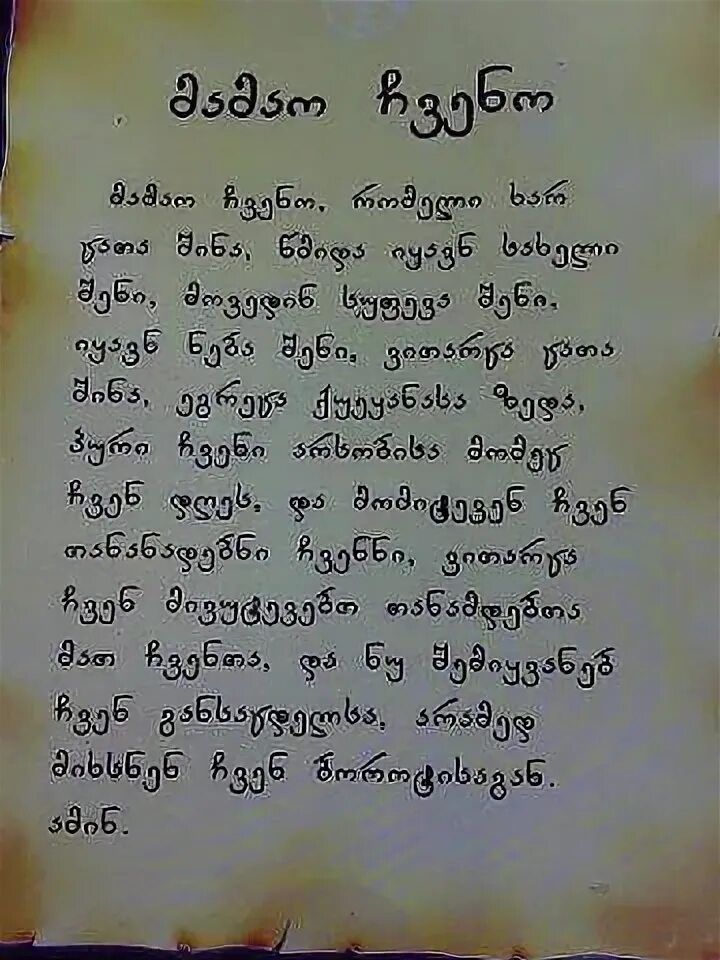 მამაო ჩვენო
მამაო ჩვენო, რომელი ხარ
ცათა შინა, წმიდა იყავნ სახელი
შენი, მოვედინ სუფევა შენი,
იყავნ ნება შენი, ვითარცა ცათა
შინა, ეგრეცა ქუეყანასა ზედა,
პური ჩვენი არსობისა მომეც
ჩვენ დღეს, და მომიტევენ ჩვენ
თანანადებნი ჩვენნი, ვითარცა
ჩვენ მივუტევებთ თანამდებთა
მათ ჩვენთა, და ნუ შემიყვანებ
ჩვენ განსაცდელსა, არამედ
მიხსნენ ჩვენ ბოროტისაგან.
ამინ.